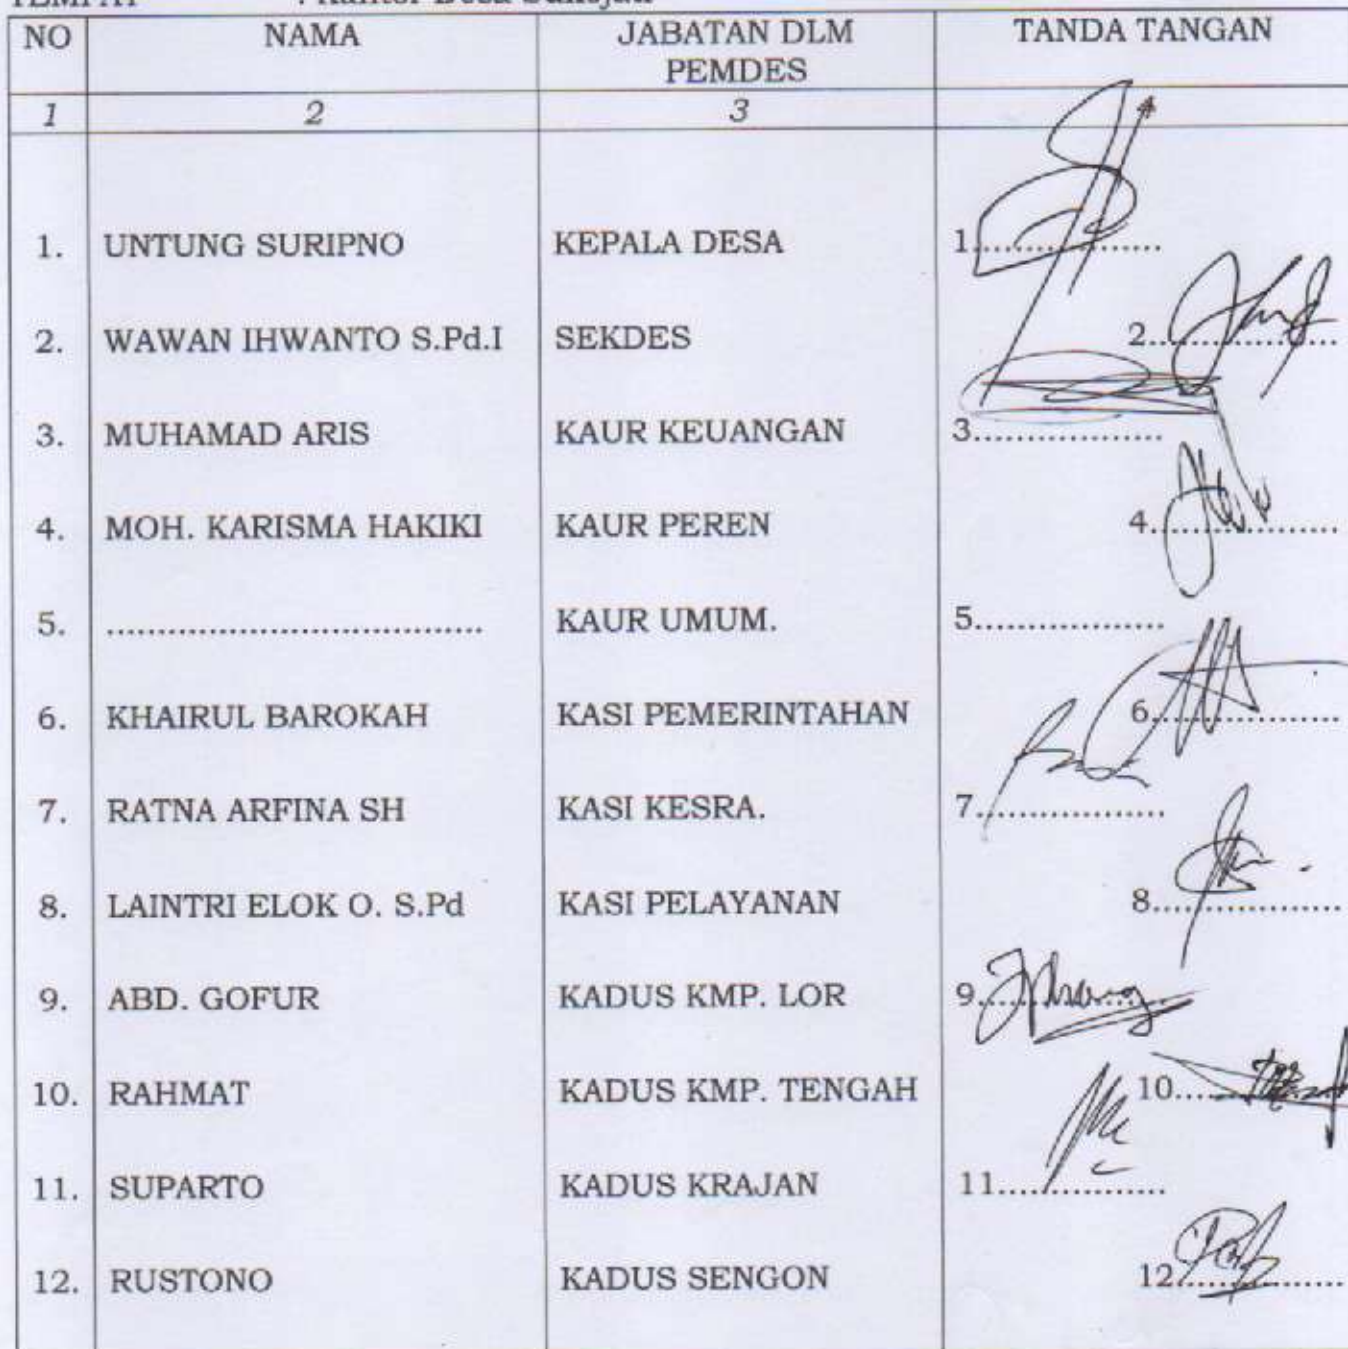 : Kantor Desa
NO NAMA JABATAN DLM PEMDES TANDA TANGAN
1 2 3 4
1. UNTUNG SURIPNO KEPALA DESA 1..................
2. WAWAN IHWANTO S.Pd.I SEKDES 2..................
3. MUHAMAD ARIS KAUR KEUANGAN 3..................
4. MOH. KARISMA HAKIKI KAUR PEREN 4..................
5. .................................... KAUR UMUM. 5..................
6. KHAIRUL BAROKAH KASI PEMERINTAHAN 6..................
7. RATNA ARFINA SH KASI KESRA. 7..................
8. LAINTRI ELOK O. S.Pd KASI PELAYANAN 8..................
9. ABD. GOFUR KADUS KMP. LOR 9..................
10. RAHMAT KADUS KMP. TENGAH 10..................
11. SUPARTO KADUS KRAJAN 11................
12. RUSTONO KADUS SENGON 12..................